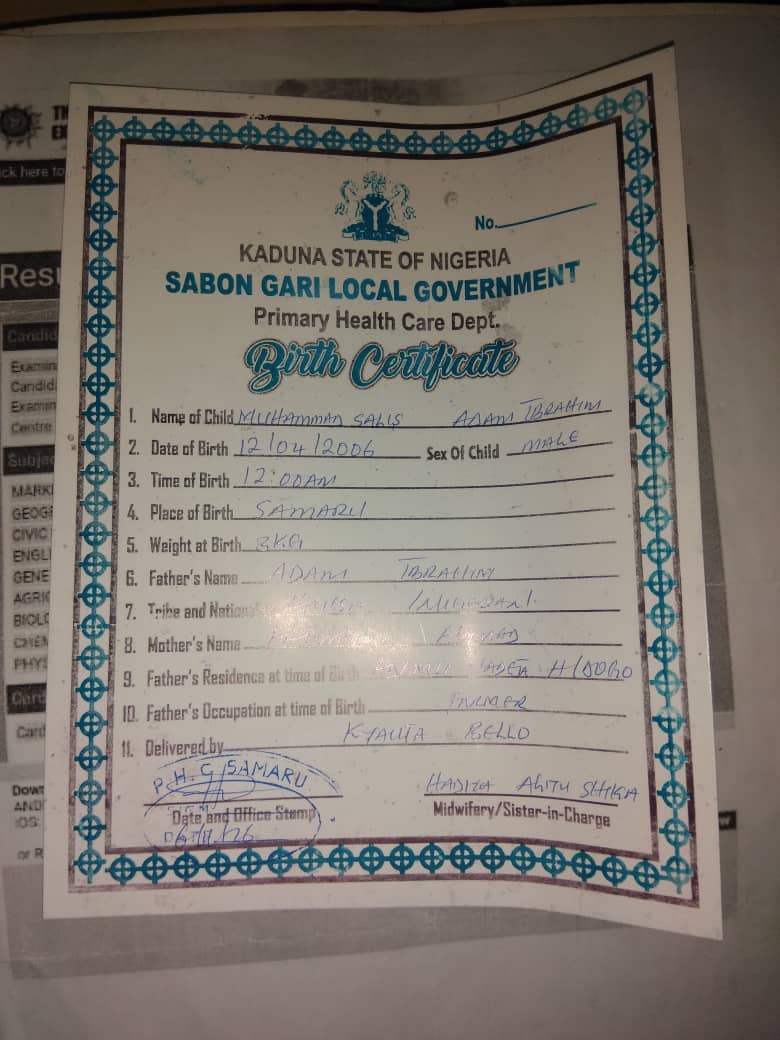 No.
KADUNA STATE OF NIGERIA
SABON GARI LOCAL GOVERNMENT
Primary Health Care Dept.
Birth Certificate
1. Name of Child MUHAMMAD SALIS ADAM IBRAHIM
2. Date of Birth 12/04/2006 Sex Of Child MALE
3. Time of Birth 12:00AM
4. Place of Birth SAMARU
5. Weight at Birth 3KG
6. Father's Name ADAM IBRAHIM
7. Tribe and
8. Mother's Name AHMAD
9. Father's Residence at time of Birth H/DOKO
10. Father's Occupation at time of Birth
11. Delivered by BELLO
P.H.C SAMARU
Date and Office Stamp
HADIZA ALIYU SHIKA
Midwifery/Sister-in-Charge
ck here to
Resu
Candid
Examin
Candid
Examin
Centre
Subje
MARK
GEOG
CIVIC
ENGL
GENE
AGRIC
BIOLO
CHEM
PHYS
Card
Card
Down
AND
iOS
or R